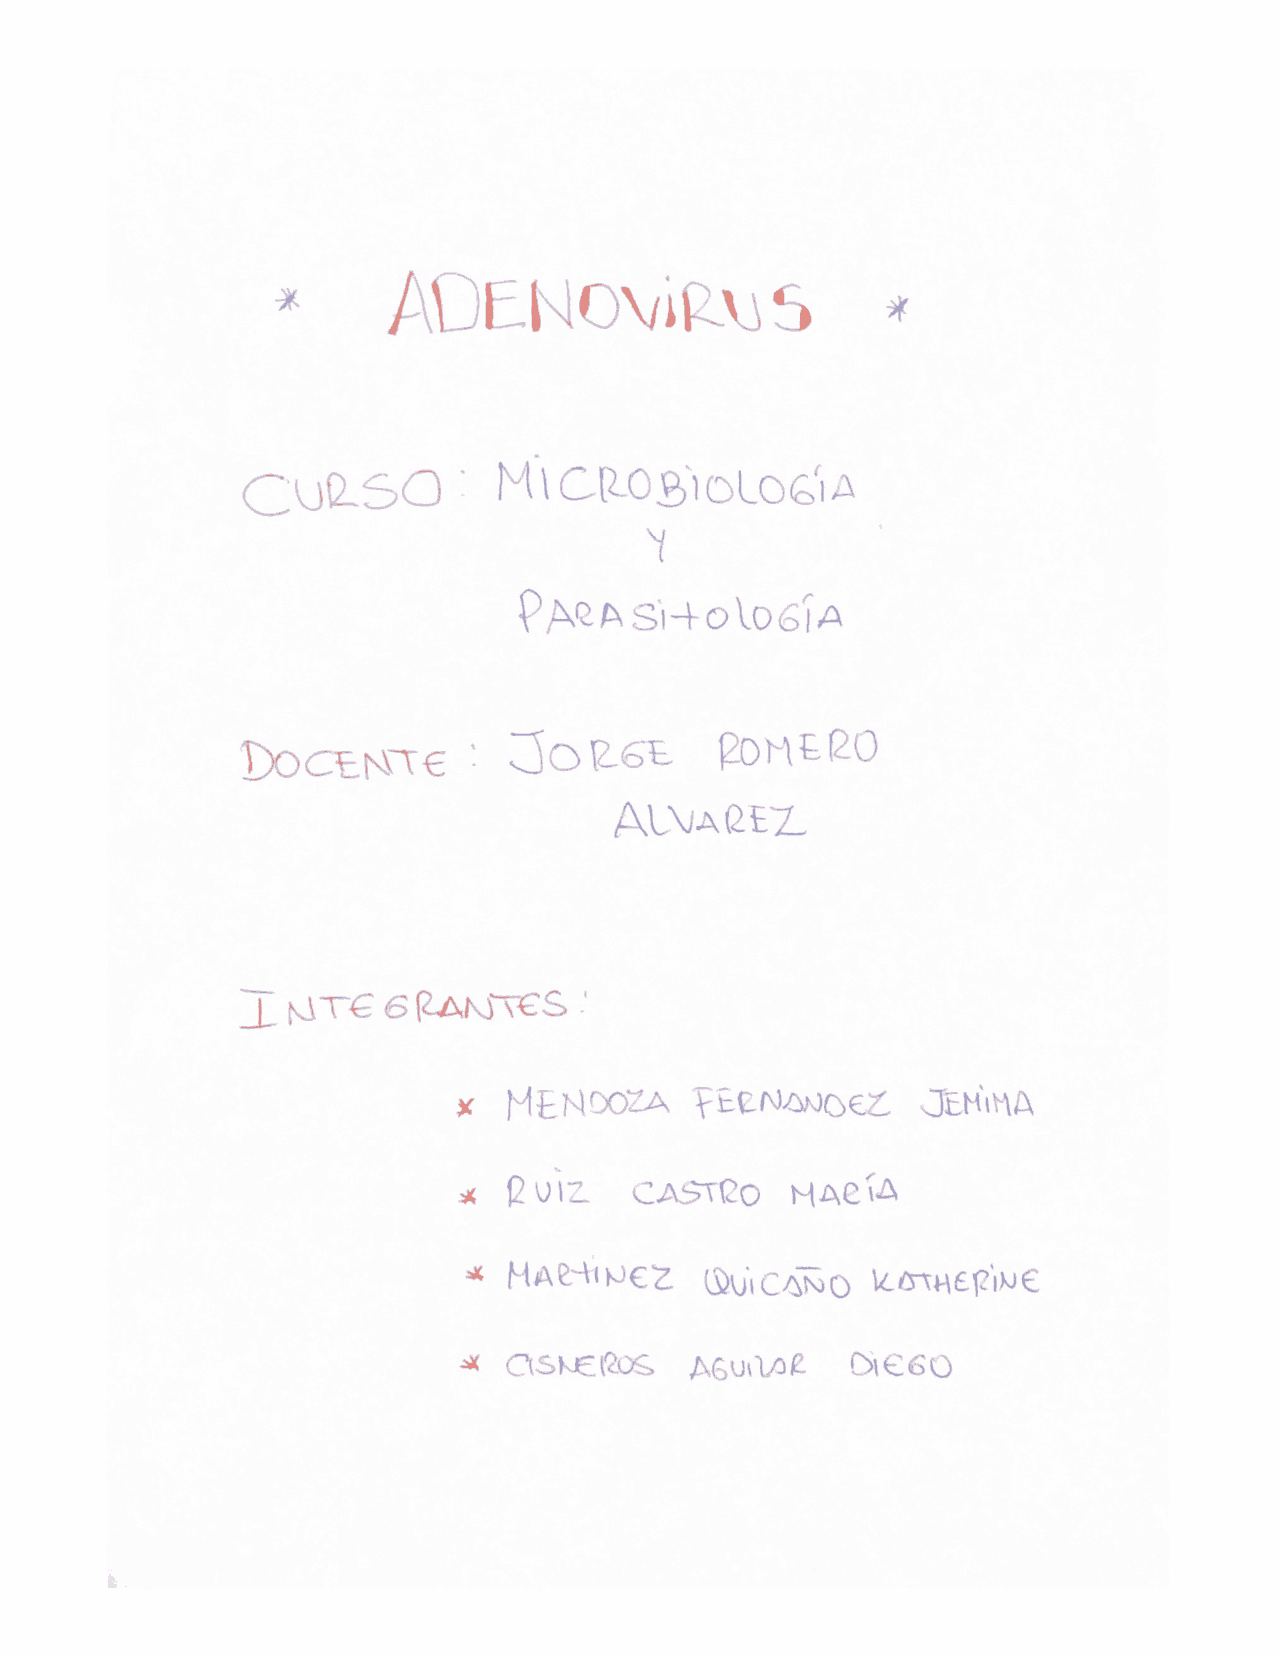 * ADENOVIRUS *
CURSO: MICROBIOLOGÍA
Y
PARASITOLOGÍA
DOCENTE: JORGE ROMERO
ALVAREZ
INTEGRANTES:
* MENDOZA FERNANDEZ JEMIMA
* RUIZ CASTRO MARÍA
* MARTINEZ QUICAÑO KATHERINE
* CISNEROS AGUILAR DIEGO